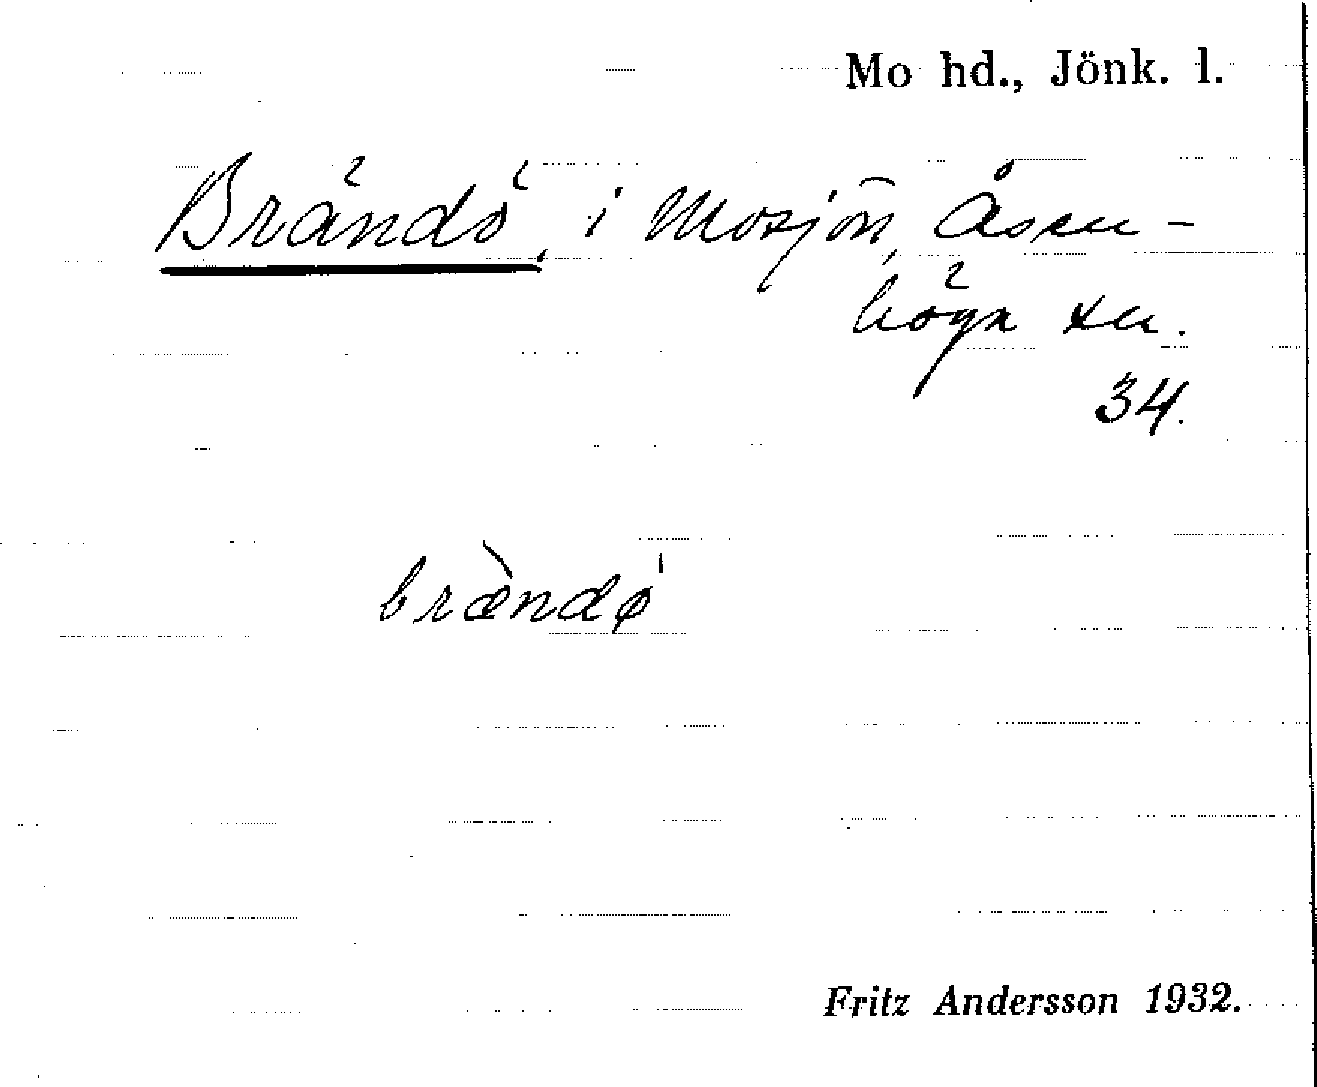 Mo hd., Jönk. l.
Brändö, i Mosjön, Åsen-
höga sn.
34.
brændø
Fritz Andersson 1932.